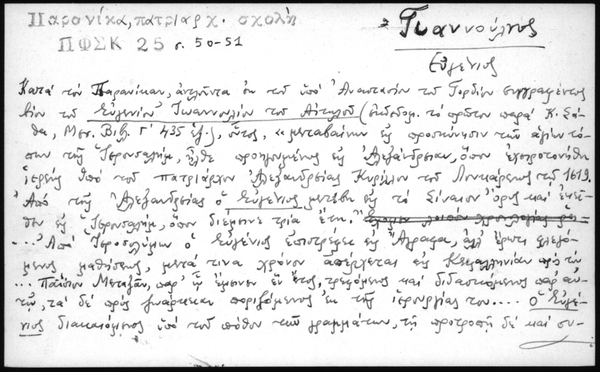 Παρανίκα, πατριαρχ. σχολὴ
ΠΦΣΚ 25 σ. 50-51
Γιαννούλης
Εὐγένιος
Κατὰ τὸν Παρανίκαν, ἀντλοῦντα ἐκ τοῦ ὑπὸ Ἀναστασίου τοῦ Γορδίου συγγραφέντος
βίου τοῦ Εὐγενίου Ἰωαννουλίου τοῦ Αἰτωλοῦ (ἐκδοδομ. τὸ πρῶτον παρὰ Κ. Σά-
θα, Μεσ. Βιβλ. Γ' 435 ἑξ.), οὗτος, «μεταβαίνων εἰς προσκύνησιν τῶν ἁγίων τό-
πων τῆς Ἱερουσαλὴμ, ἦλθε προηγουμένως εἰς Ἀλεξάνδρειαν, ὅπου ἐχειροτονήθη
ἱερεὺς ὑπὸ τοῦ πατριάρχου Ἀλεξανδρείας Κυρίλλου τοῦ Λουκάρεως τῷ 1619.
Ἀπὸ τῆς Ἀλεξανδρείας ὁ Εὐγένιος μετέβη εἰς τὸ Σίναιον Ὄρος καὶ ἐκεῖ-
θεν εἰς Ἱερουσαλὴμ, ὅπου διέμεινε τρία ἔτη.
... Ἀπὸ Ἱεροσολύμων ὁ Εὐγένιος ἐπιστρέφει εἰς Ἄγραφα, ἀλλ' ἔρωτι φλεγό-
μενος μαθήσεως, μετά τινα χρόνον ἀπέρχεται εἰς Κεφαλληνίαν πρὸς τὸν
... Παΐσιον Μεταξᾶν, παρ' ᾧ ἔμεινεν ἓν ἔτος, τρεφόμενος καὶ διδασκόμενος παρ' αὐ-
τῷ, τὰ δὲ πρὸς ἐνάρκειαν ποριζόμενος ἐκ τῆς ἱερουργίας του .... ὁ Εὐγέ-
νιος διακαιόμενος ὑπὸ τοῦ πόθου τῶν γραμμάτων, τῇ προτροπῇ δὲ καὶ συ-